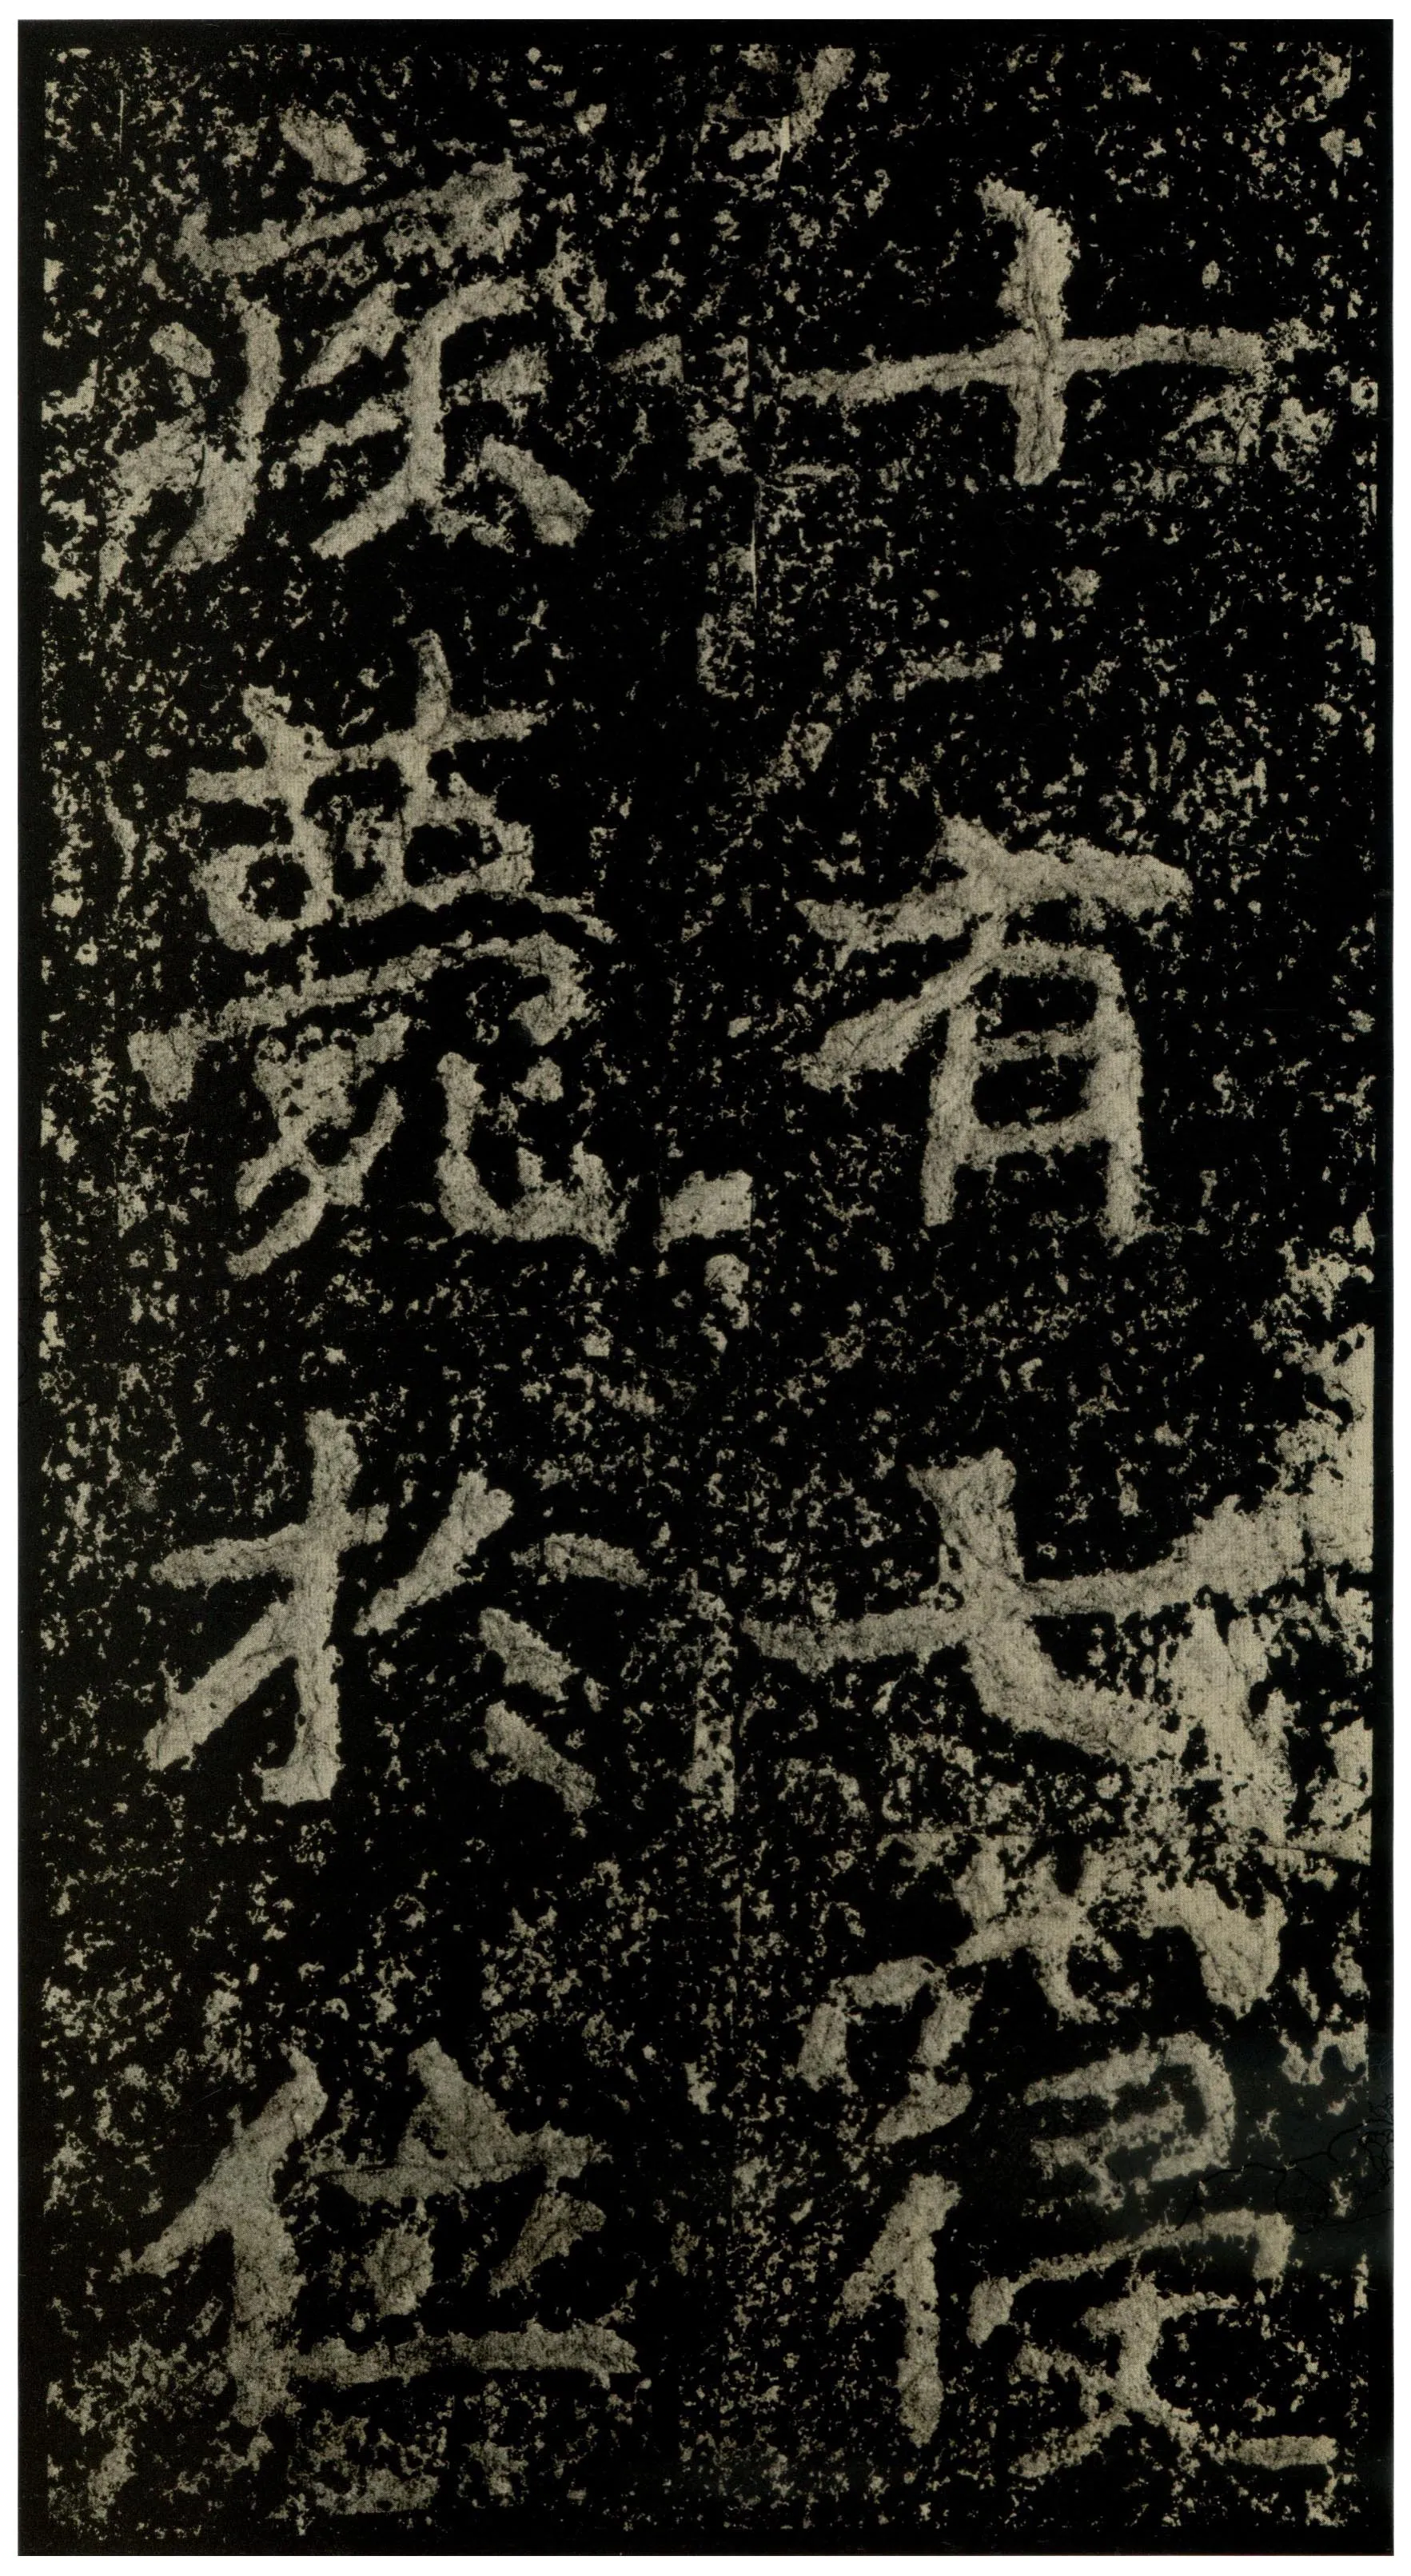 十有七寢
疾薨於位